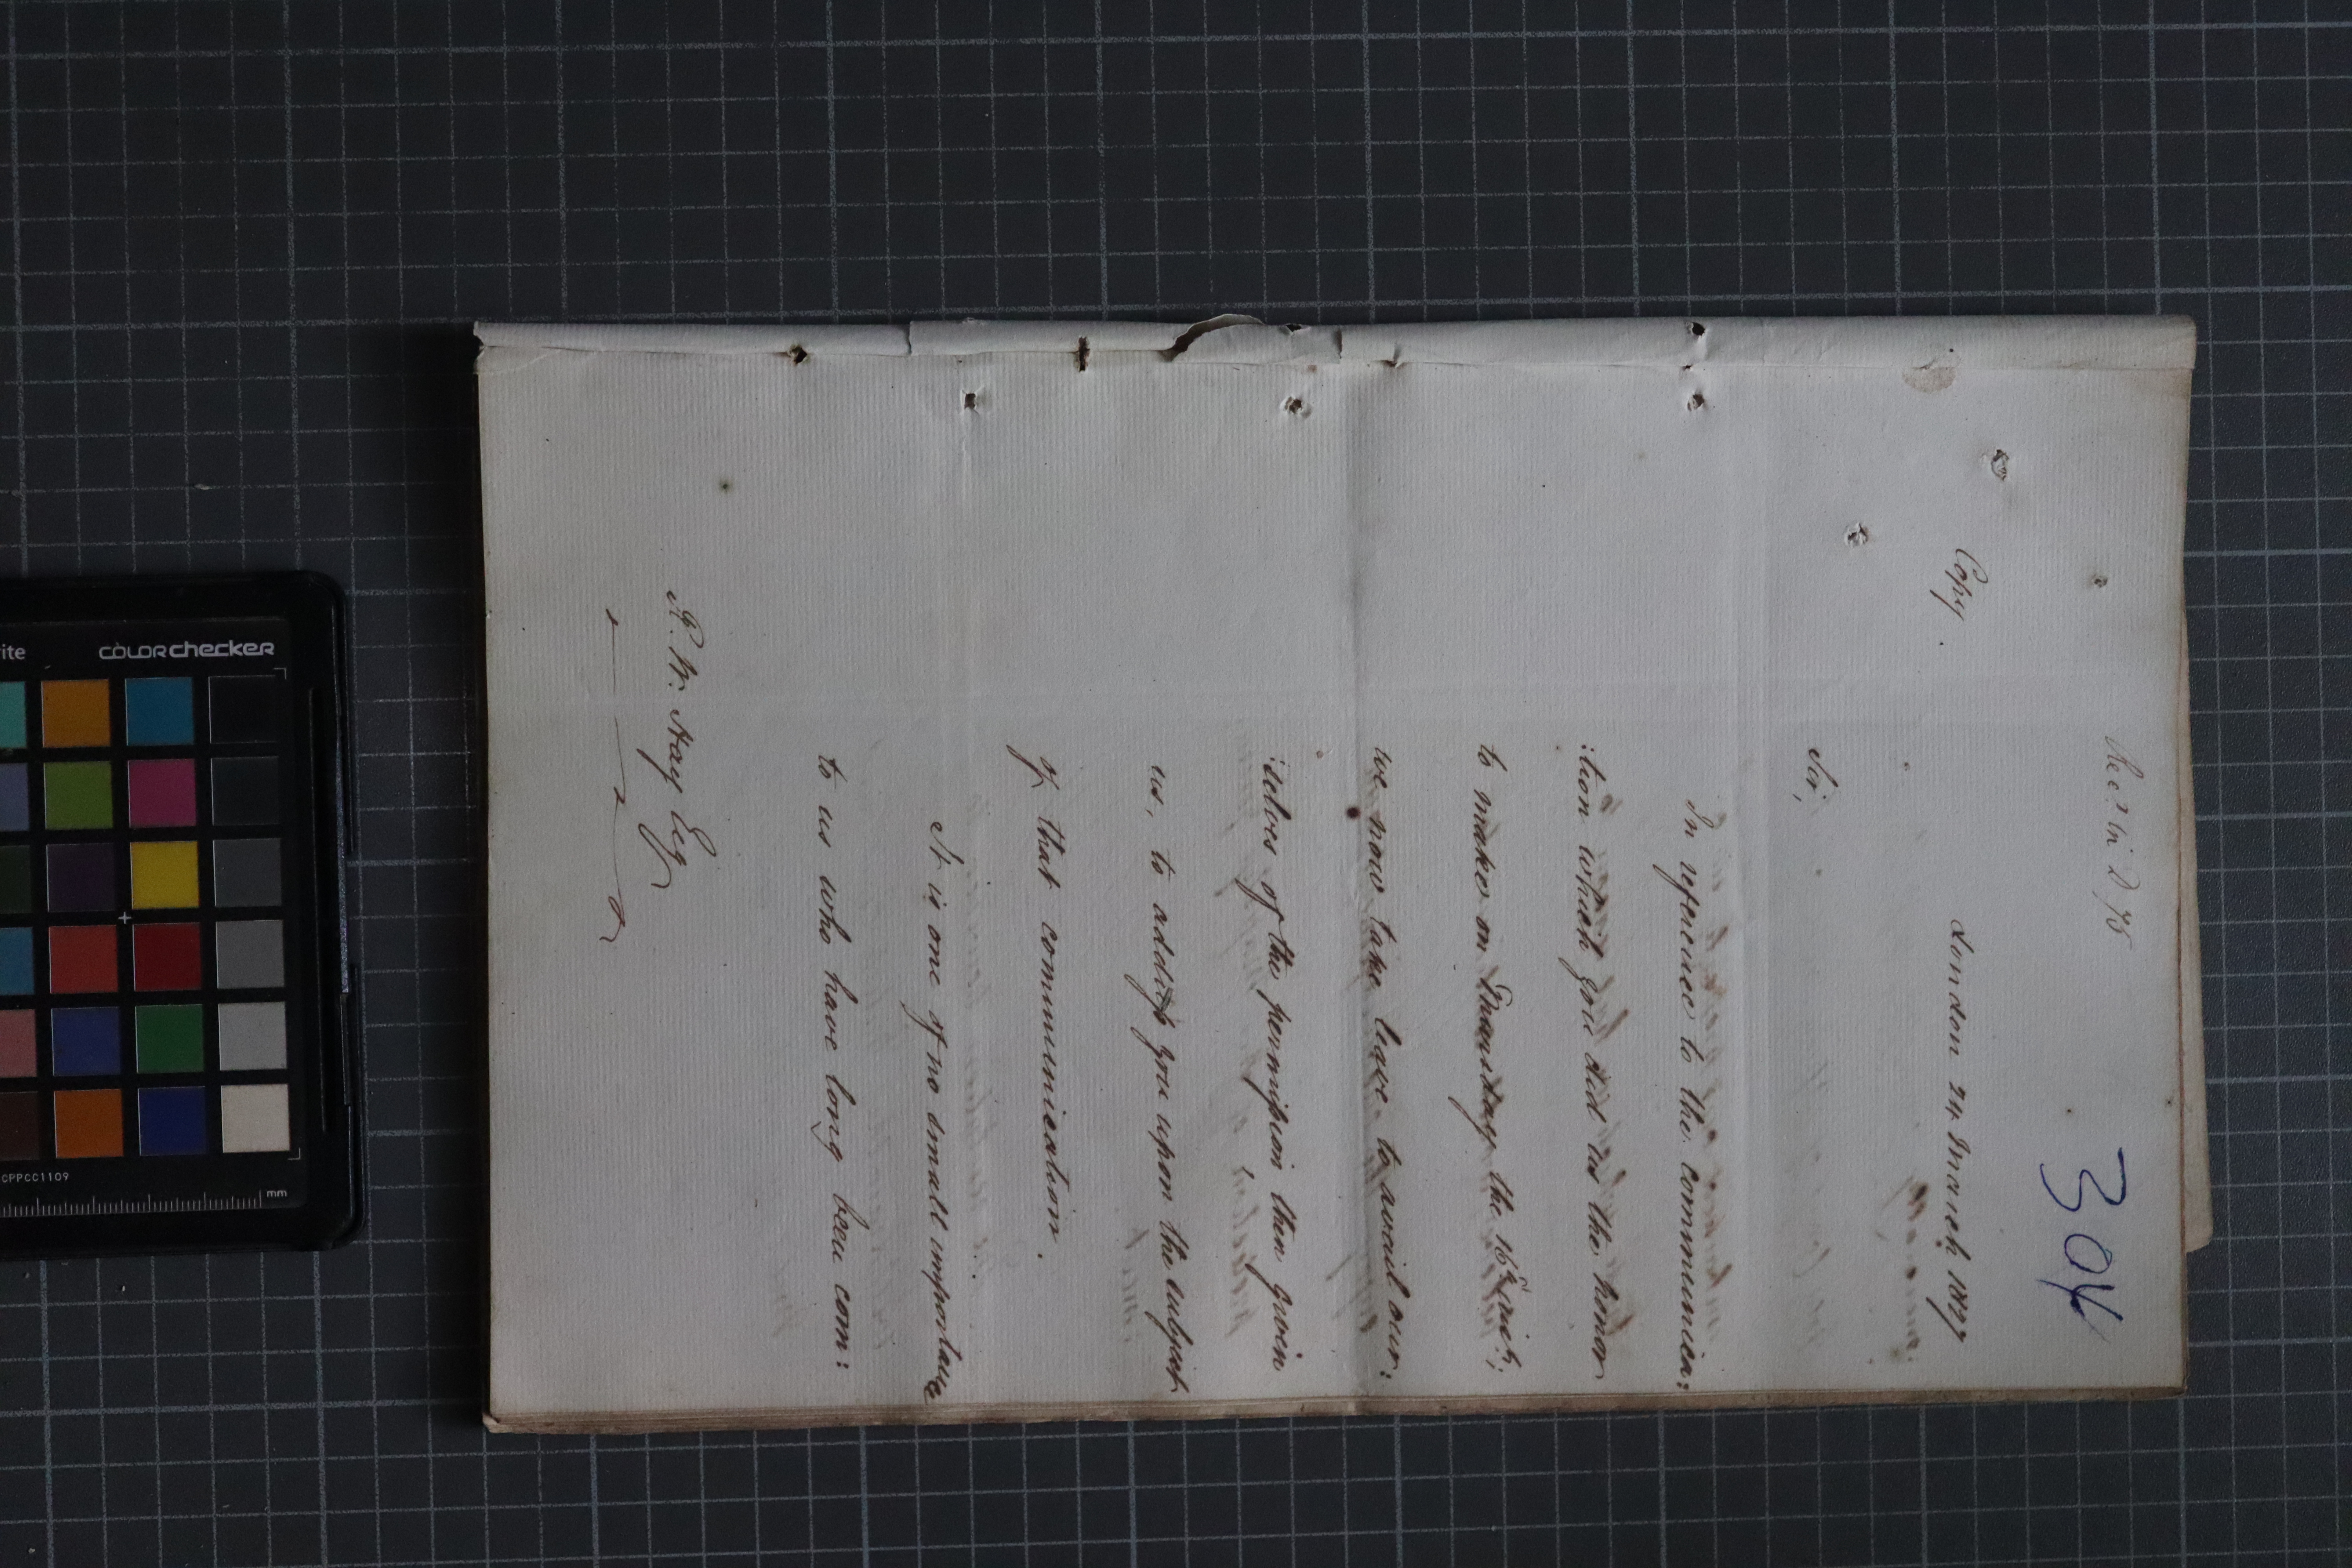 Rec.d in D 75
304
Copy.
London 24 March 1827
Sir,
In reference to the communica:
:tion which you did us the honor
to make on Thursday the 16th
we now take leave to avail our:
:selves of the permission then given
us, to address you upon the subject
of that communication.
It is one of no small importance
to us who have long been com:
R. W. Hay Esq
colorchecker
CPPCC1109
mm